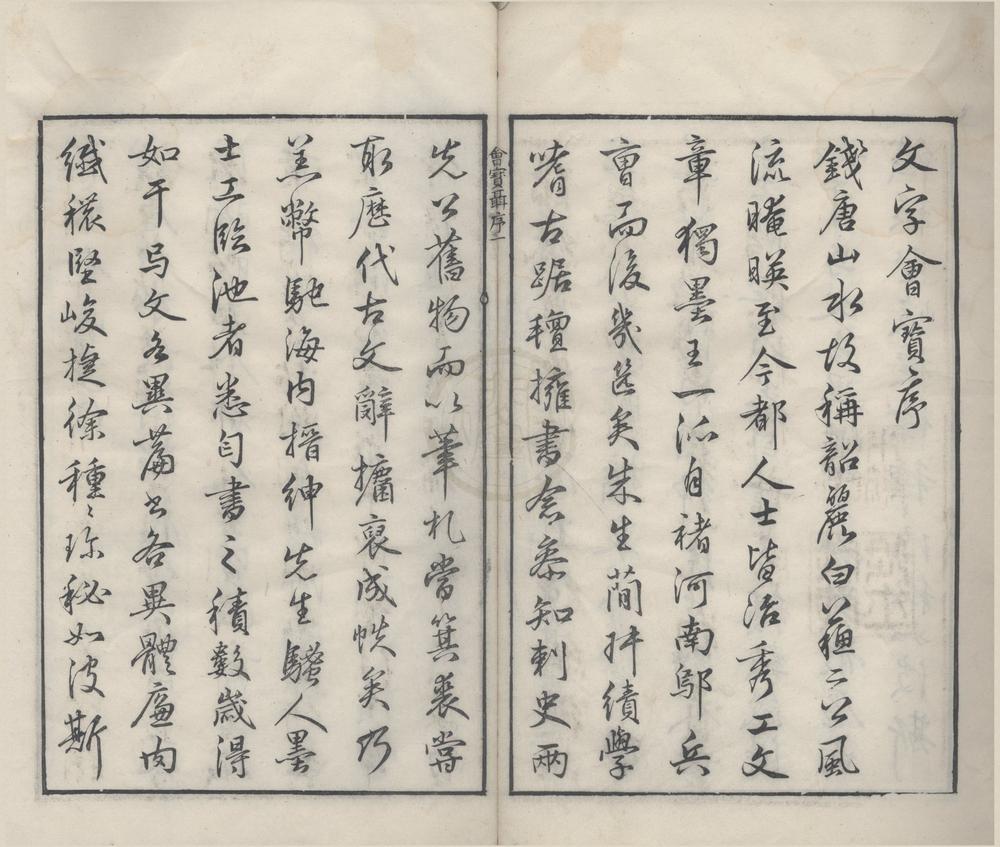 文字會寶序
錢唐山水故稱韶麗白蘓二公風
流晻暎至今都人士皆治秀工文
章獨墨王一派自褚河南鄔兵
曺而後幾茫矣朱生蕳叔績學
嗜古踞穜擁書念忝知刺史兩
會寶聶序一
先公舊物而以筆札當箕裘嘗
取歷代古文辭攟裒成帙矣乃
羔幣馳海內搢紳先生騷人墨
士工臨池者悉匄書之積數歲得
如干与文各異篇書各異體廉肉
纖穠堅峻捷徐種〻珎秘如波斯